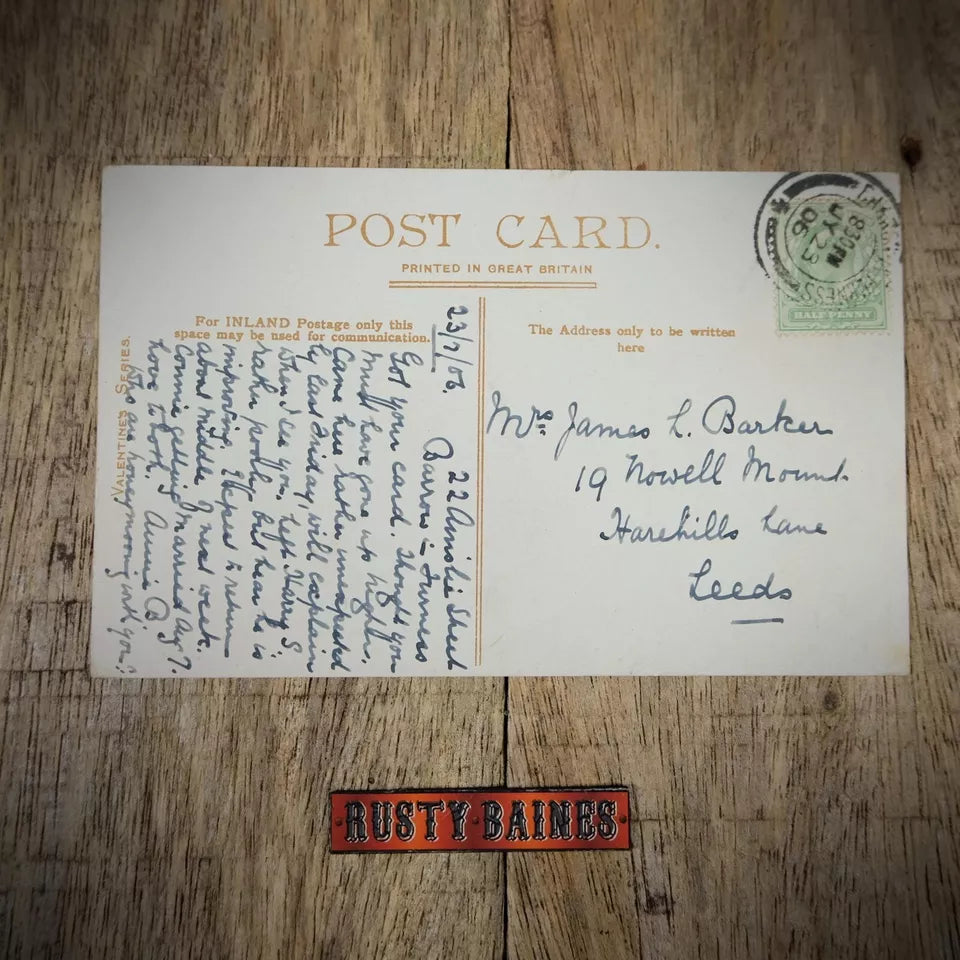 POST CARD.
PRINTED IN GREAT BRITAIN
For INLAND Postage only this
space may be used for communication.
The Address only to be written
here
VALENTINE'S SERIES.
23/7/06.
22 Ainslie Street
Barrow-in-Furness
Got your card. Thought you
must have gone up higher.
Came here rather unexpected
ly last Friday, will explain
when I see you, hope Harry S
rather poorly, but hear he is
improving. Expect to return
about middle of next week.
Connie getting married Aug 7.
Love to both. Annie B
Who are honeymooning with you?
Mrs James L. Barker
19 Nowell Mount.
Harehills Lane
Leeds
8 30 PM
JY 23
06
HALF PENNY
RUSTY·BAINES